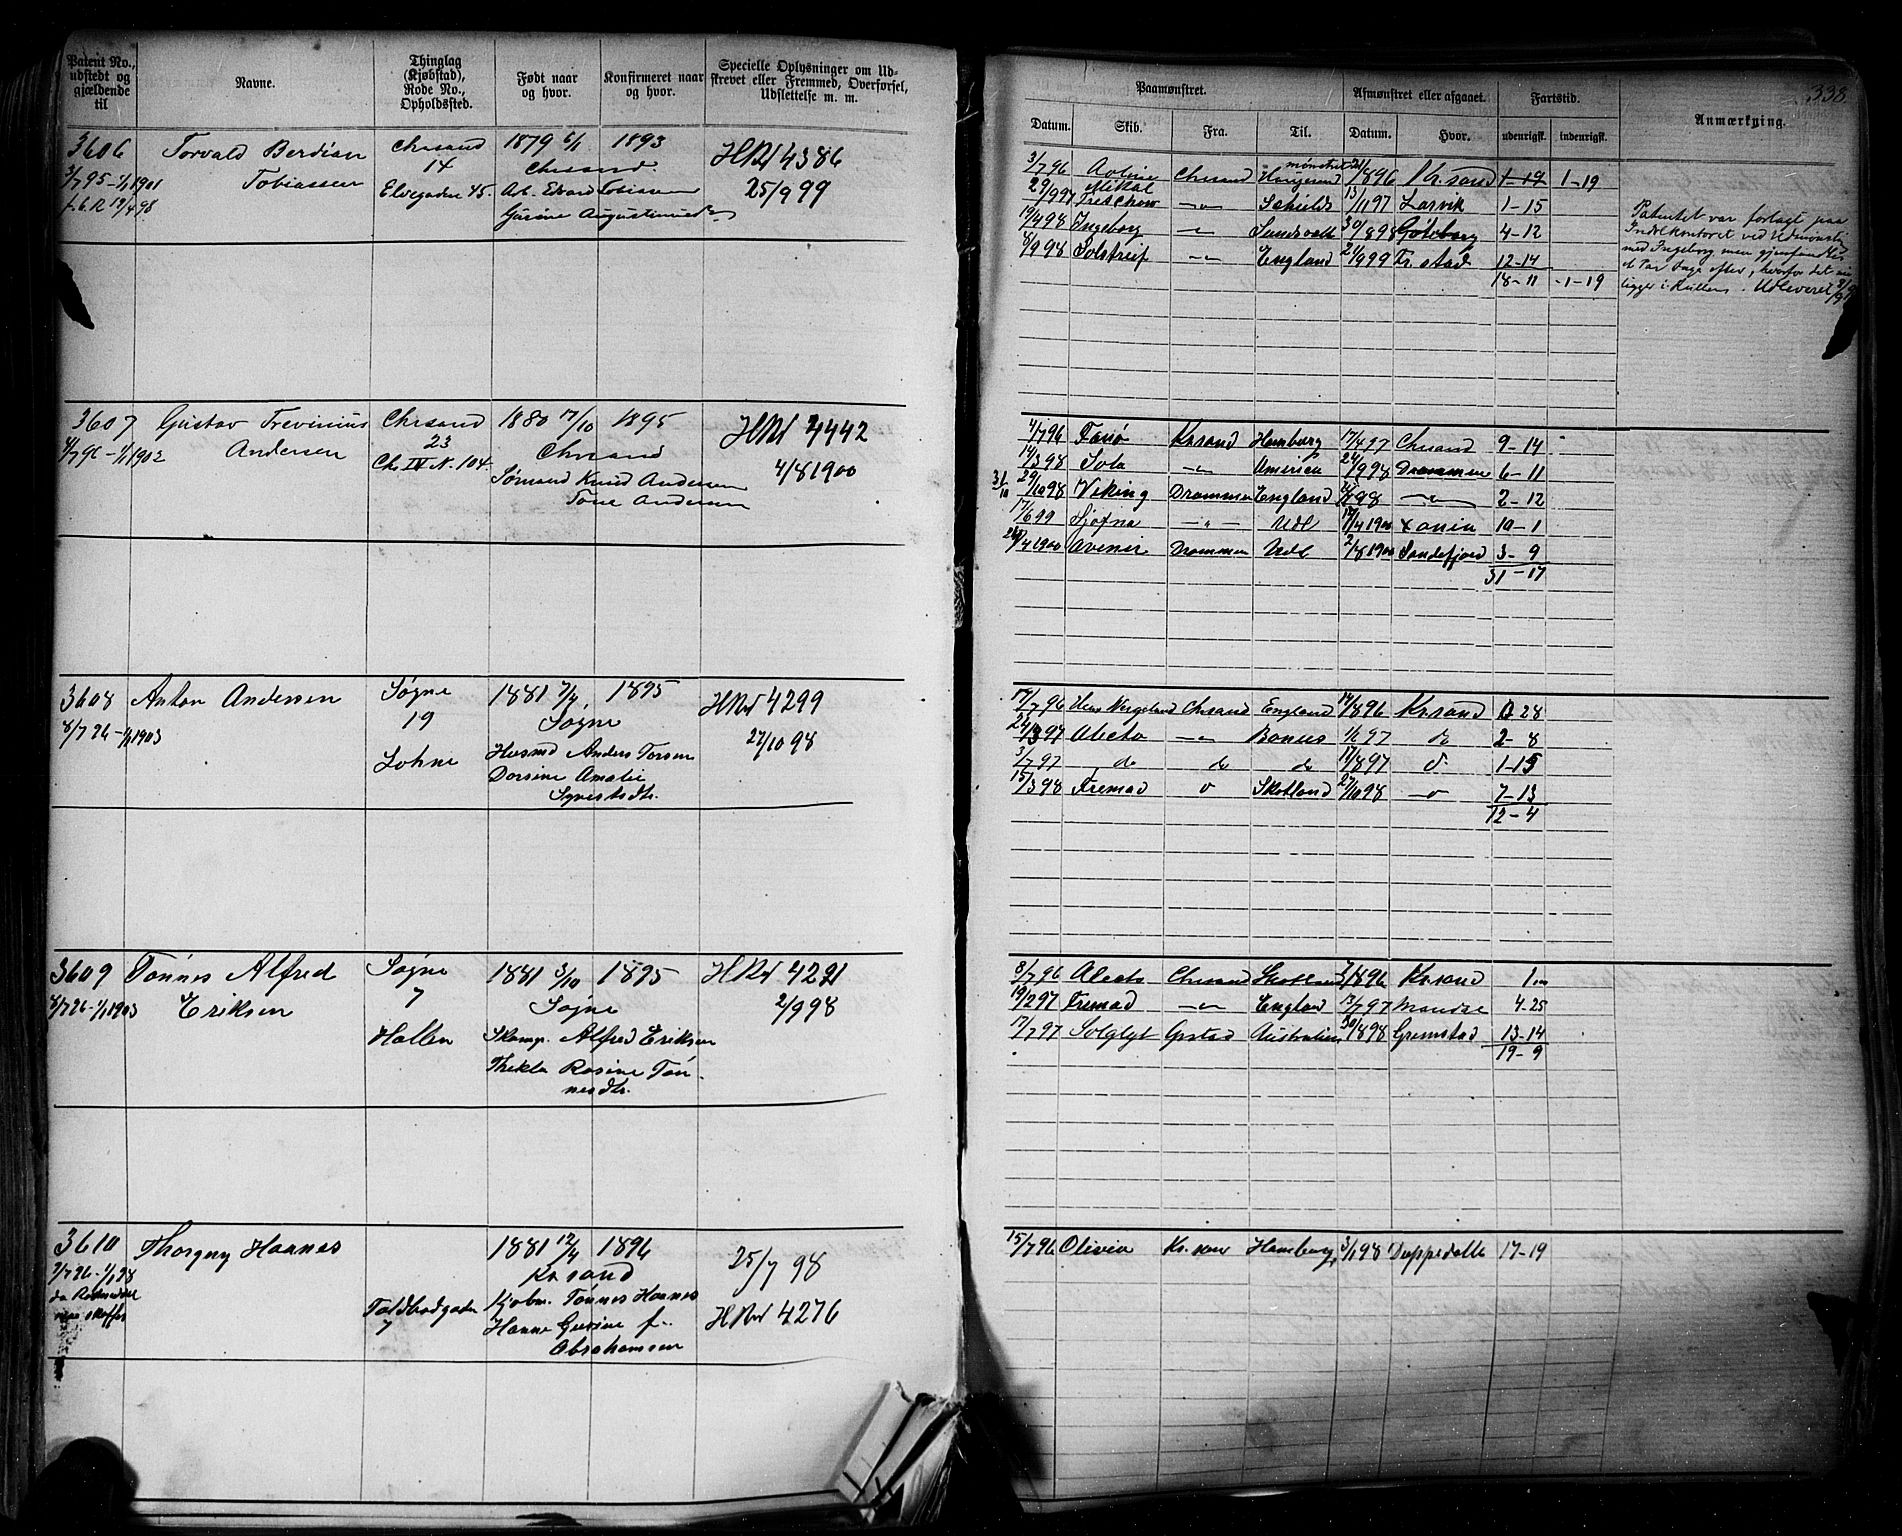 Patent No., udstedt og gjældende til
Navne.
Thinglag (Kjøbstad), Rode No., Opholdssted.
Født naar og hvor.
Konfirmeret naar og hvor.
Specielle Oplysninger om Udskrevet eller Fremmed, Overførsel, Udslettelse m. m.
3606 Torvald Berdian Chrsand 1879 6/1 1893 HRul 4386
3/7 95 - 1/1 1901 Tobiassen 14 Chrsand. 25/9 99
Elvegaden 45. Arb. Edvard Tobiassen
Gurine Augustinusdr
3607 Gustav Frevinius Chrsand 1880 17/10 1895 HRul 4442
4/7 96 - 1/1 1902 Andersen 23 Chrsand 4/8 1900
Ch. IV N. 104. Sømand Knud Andersen
Tone Andersen
3608 Anton Andersen Søgne 1881 7/4 1895 HRul 4299
8/7 96 - 1/1 1903 19 Søgne 27/10 98
Lohne Husmd Anders Torsen
Dorsine Amalie
Syvertsdtr.
3609 Tønnes Alfred Søgne 1881 3/10 1895 HRul 4291
8/7 96 - 1/1 1903 Eriksen 7 Søgne 2/9 98
Høllen Skomp. Alfred Eriksen
Thekla Rosine Tøn-
nesdtr.
3610 Thorguy Haanes 1881 12/4 1896 25/7 98
Kr.sand
Toldbodgaden Kjøbm. Tønnes Haanes
7 Hanne Gurine f. HRul 4276
Abrahamsen
338.
Paamønstret.
Afmønstret eller afgaaet.
Fartstid.
Anmærkning.
Datum. Skib. Fra. Til. Datum. Hvor. udenrigsk. indenrigsk.
3/7 96 Chrsand Haugesund 21/8 96 Kr.sand 1-19 1-19
29/9 97 Mikal Treschow -"- 13/11 97 Larvik 1-15
19/4 98 Ingeborg -"- Sundsvall 30/8 98 Göteborg 4-12
8/9 98 Solstreif -"- England 21/9 99 Fr.stad 12-14
18-11 -1-19
Patentet var forlagt paa
Indrlkontoret ved Udmønstr
med Ingeborg, men gjenfandtes
et Par Dage efter, hvorfor det
ligger i Rullen. Udleveret
4/7 96 Fanø Kr.sand Hamburg 17/4 97 Chrsand 9-14
14/3 98 Sola -"- Amerika 24/9 98 Drammen 6-11
31/10 29/10 98 Viking Drammen England -"- 2-12
17/6 99 Hjofna -"- Udl 17/4 1900 10-1
26/4 1900 Avenir Drammen Udl 2/8 1900 Sandefjord 3-9
31-17
17/7 96 Hen. Vergeland Chrsand England 14/8 96 Kr.sand 0 28
24/3 97 Alecto -"- Bonus 1/6 97 do 2-8
3/7 97 do do do 17/8 97 do 1-15
15/3 98 Fremad o Skotland 27/10 98 -o 7-13
12-4
8/7 96 Alecto Chrsand Skotland 7/8 96 Kr.sand 1 m
19/2 97 Fremad -"- England 13/7 97 Mandal 4-25
17/7 97 Solglyt Grstad Australien 30/8 98 Grimstad 13-14
19-9
15/7 96 Olivia Kr.san Hamburg 3/1 98 Deppedalle 17-19